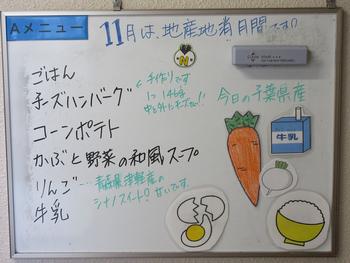 Aメニュー
11月は、地産地消月間です!!
ごはん
チーズハンバーグ
手作りです
1つ146g
中と外にチーズ!!
今日の千葉県産
コーンポテト
かぶと野菜の和風スープ
りんご…青森県津軽産の
シナノスイート!甘いです。
牛乳
牛乳